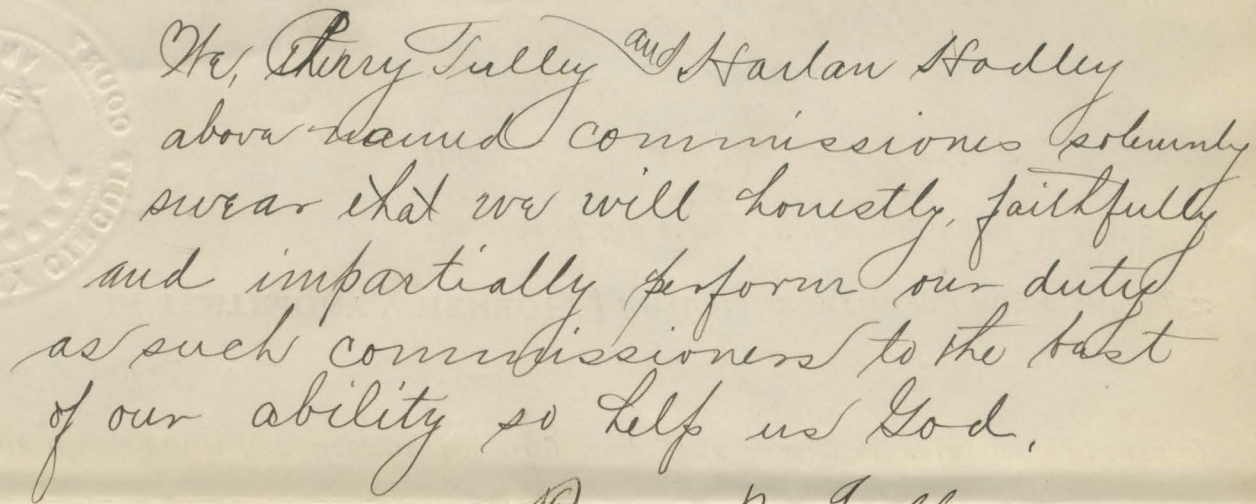 We, Perry Tulley and Harlan Hadley
above named commissiones solemnly
swear that we will honestly, faithfully
and impartially perform our duty
as such commissioners to the best
of our ability so help us God.